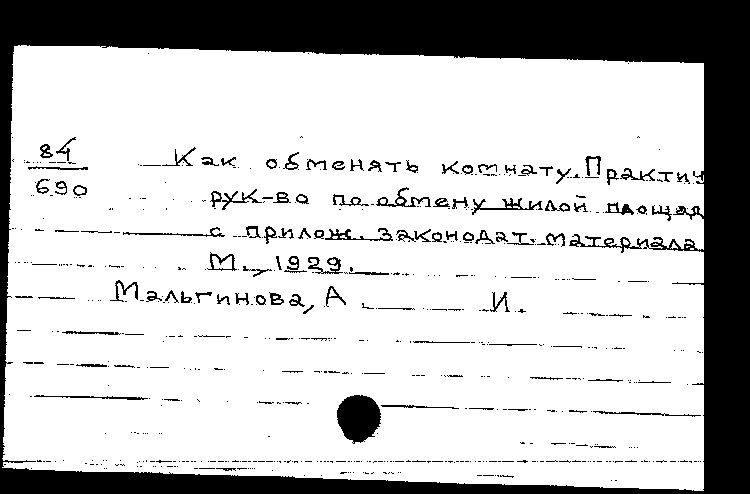 84
690
Как обменять комнату. Практич
рук-во по обмену жилой площад
с прилож. законодат. материала
М., 1929.
Мальгинова, А. И.